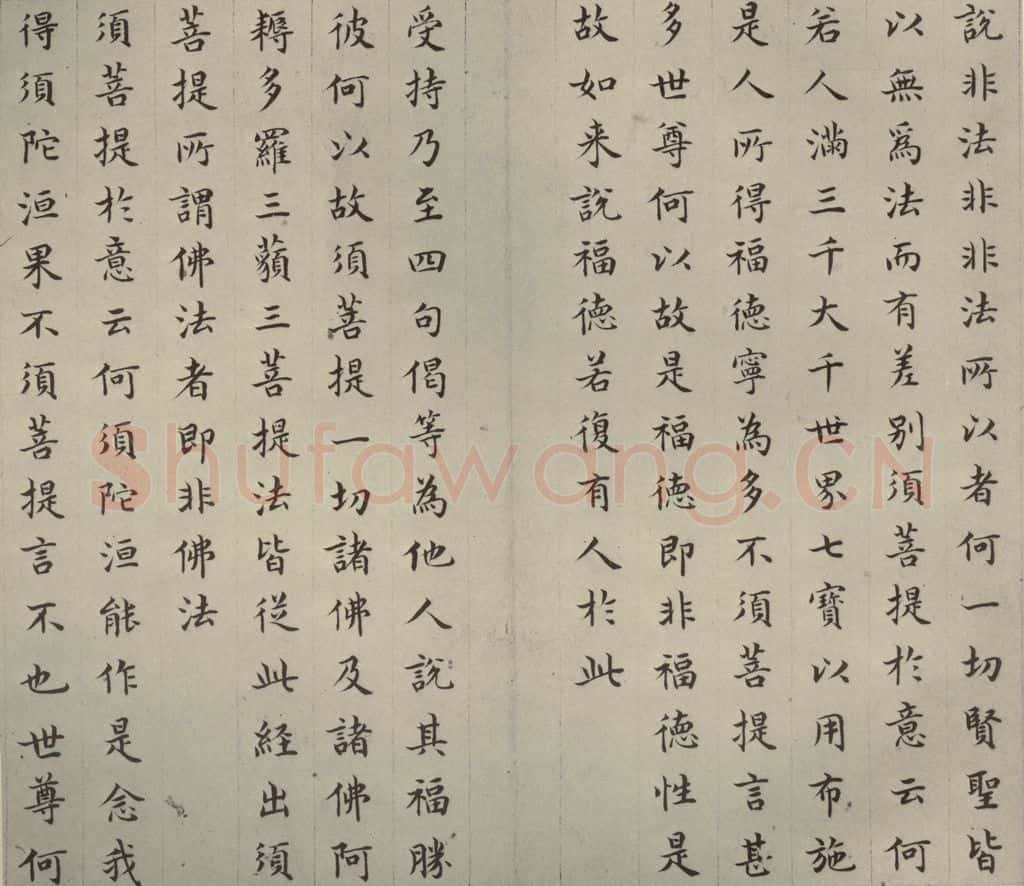 說非法非非法所以者何一切賢聖皆
以無爲法而有差别須菩提扵意云何
若人滿三千大千世界七寶以用布施
是人所得福德寧為多不須菩提言甚
多世尊何以故是福德即非福德性是
故如来說福德若復有人扵此
受持乃至四句偈等為他人說其福勝
彼何以故須菩提一切諸佛及諸佛阿
耨多羅三藐三菩提法皆従此経出須
菩提所謂佛法者即非佛法
須菩提扵意云何須陀洹能作是念我
得須陀洹果不須菩提言不也世尊何
Shufawang.CN